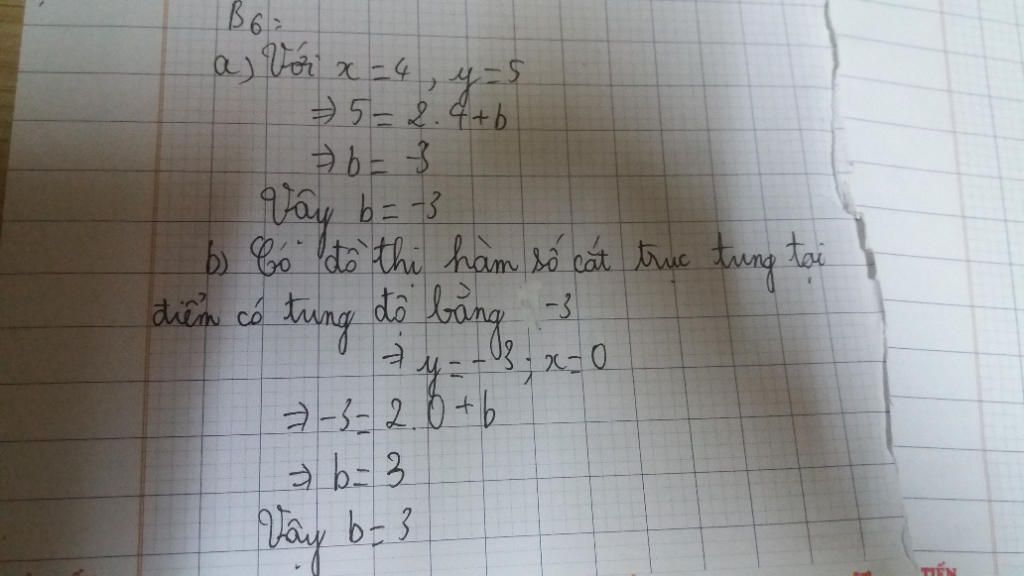 B6:
a) Với x = 4, y = 5
⇒ 5 = 2.4 + b
⇒ b = -3
Vậy b = -3
b) Có đồ thi hàm số cắt trục tung tại
điểm có tung độ bằng -3
⇒ y = -3; x = 0
⇒ -3 = 2.0 + b
⇒ b = 3
Vậy b = 3
TIẾN